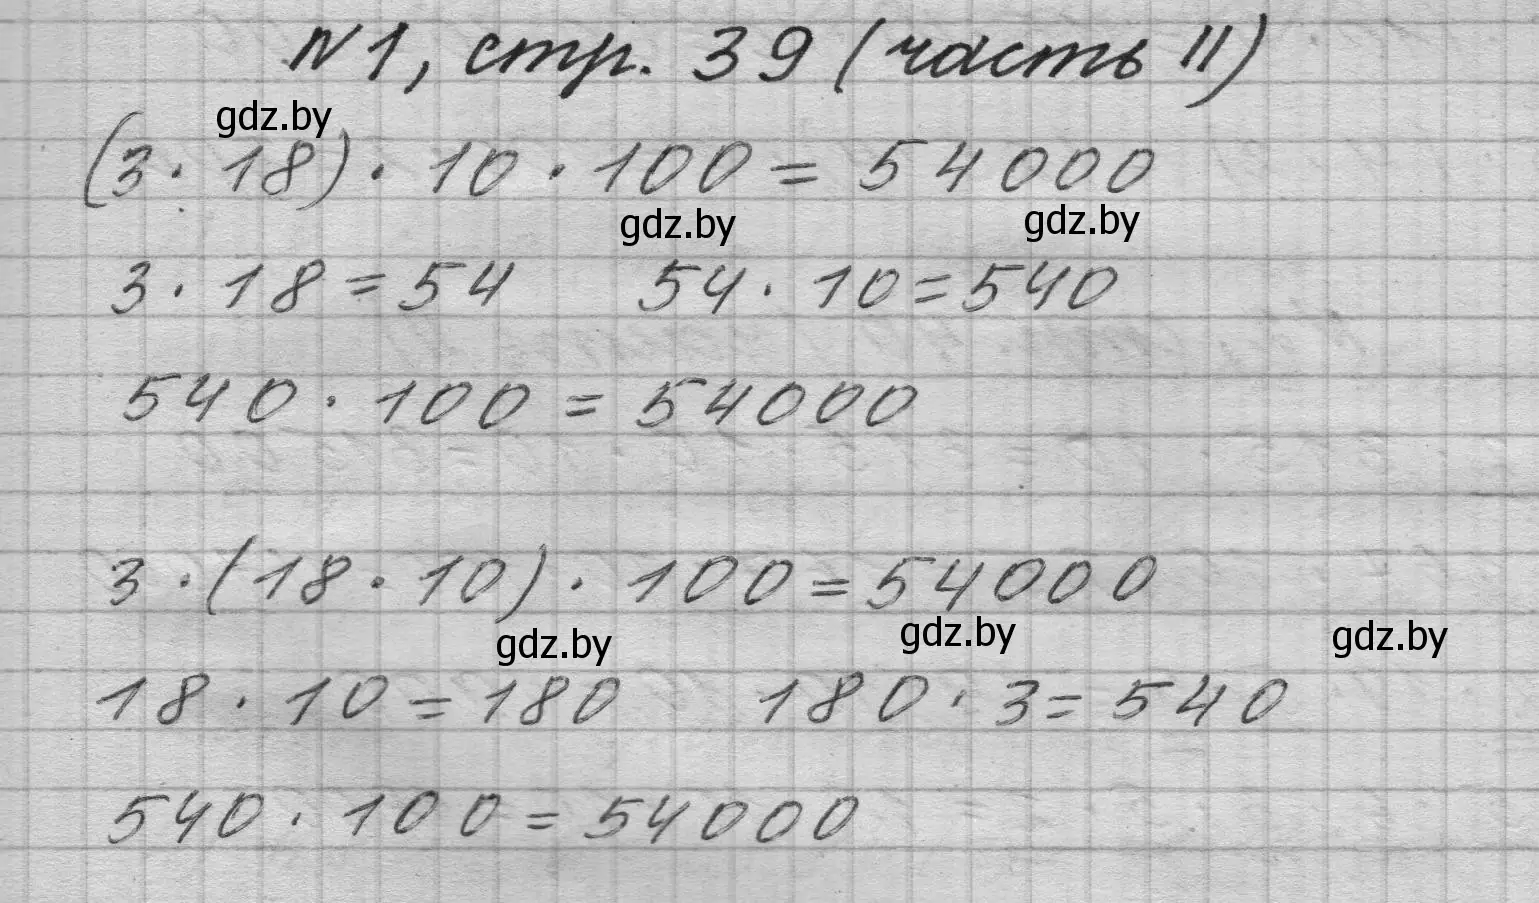 №1, стр. 39 (часть II)
gdz.by
(3 · 18) · 10 · 100 = 54000
gdz.by gdz.by
3 · 18 = 54 54 · 10 = 540
540 · 100 = 54000
3 · (18 · 10) · 100 = 54000
gdz.by gdz.by gdz.by
18 · 10 = 180 180 · 3 = 540
540 · 100 = 54000